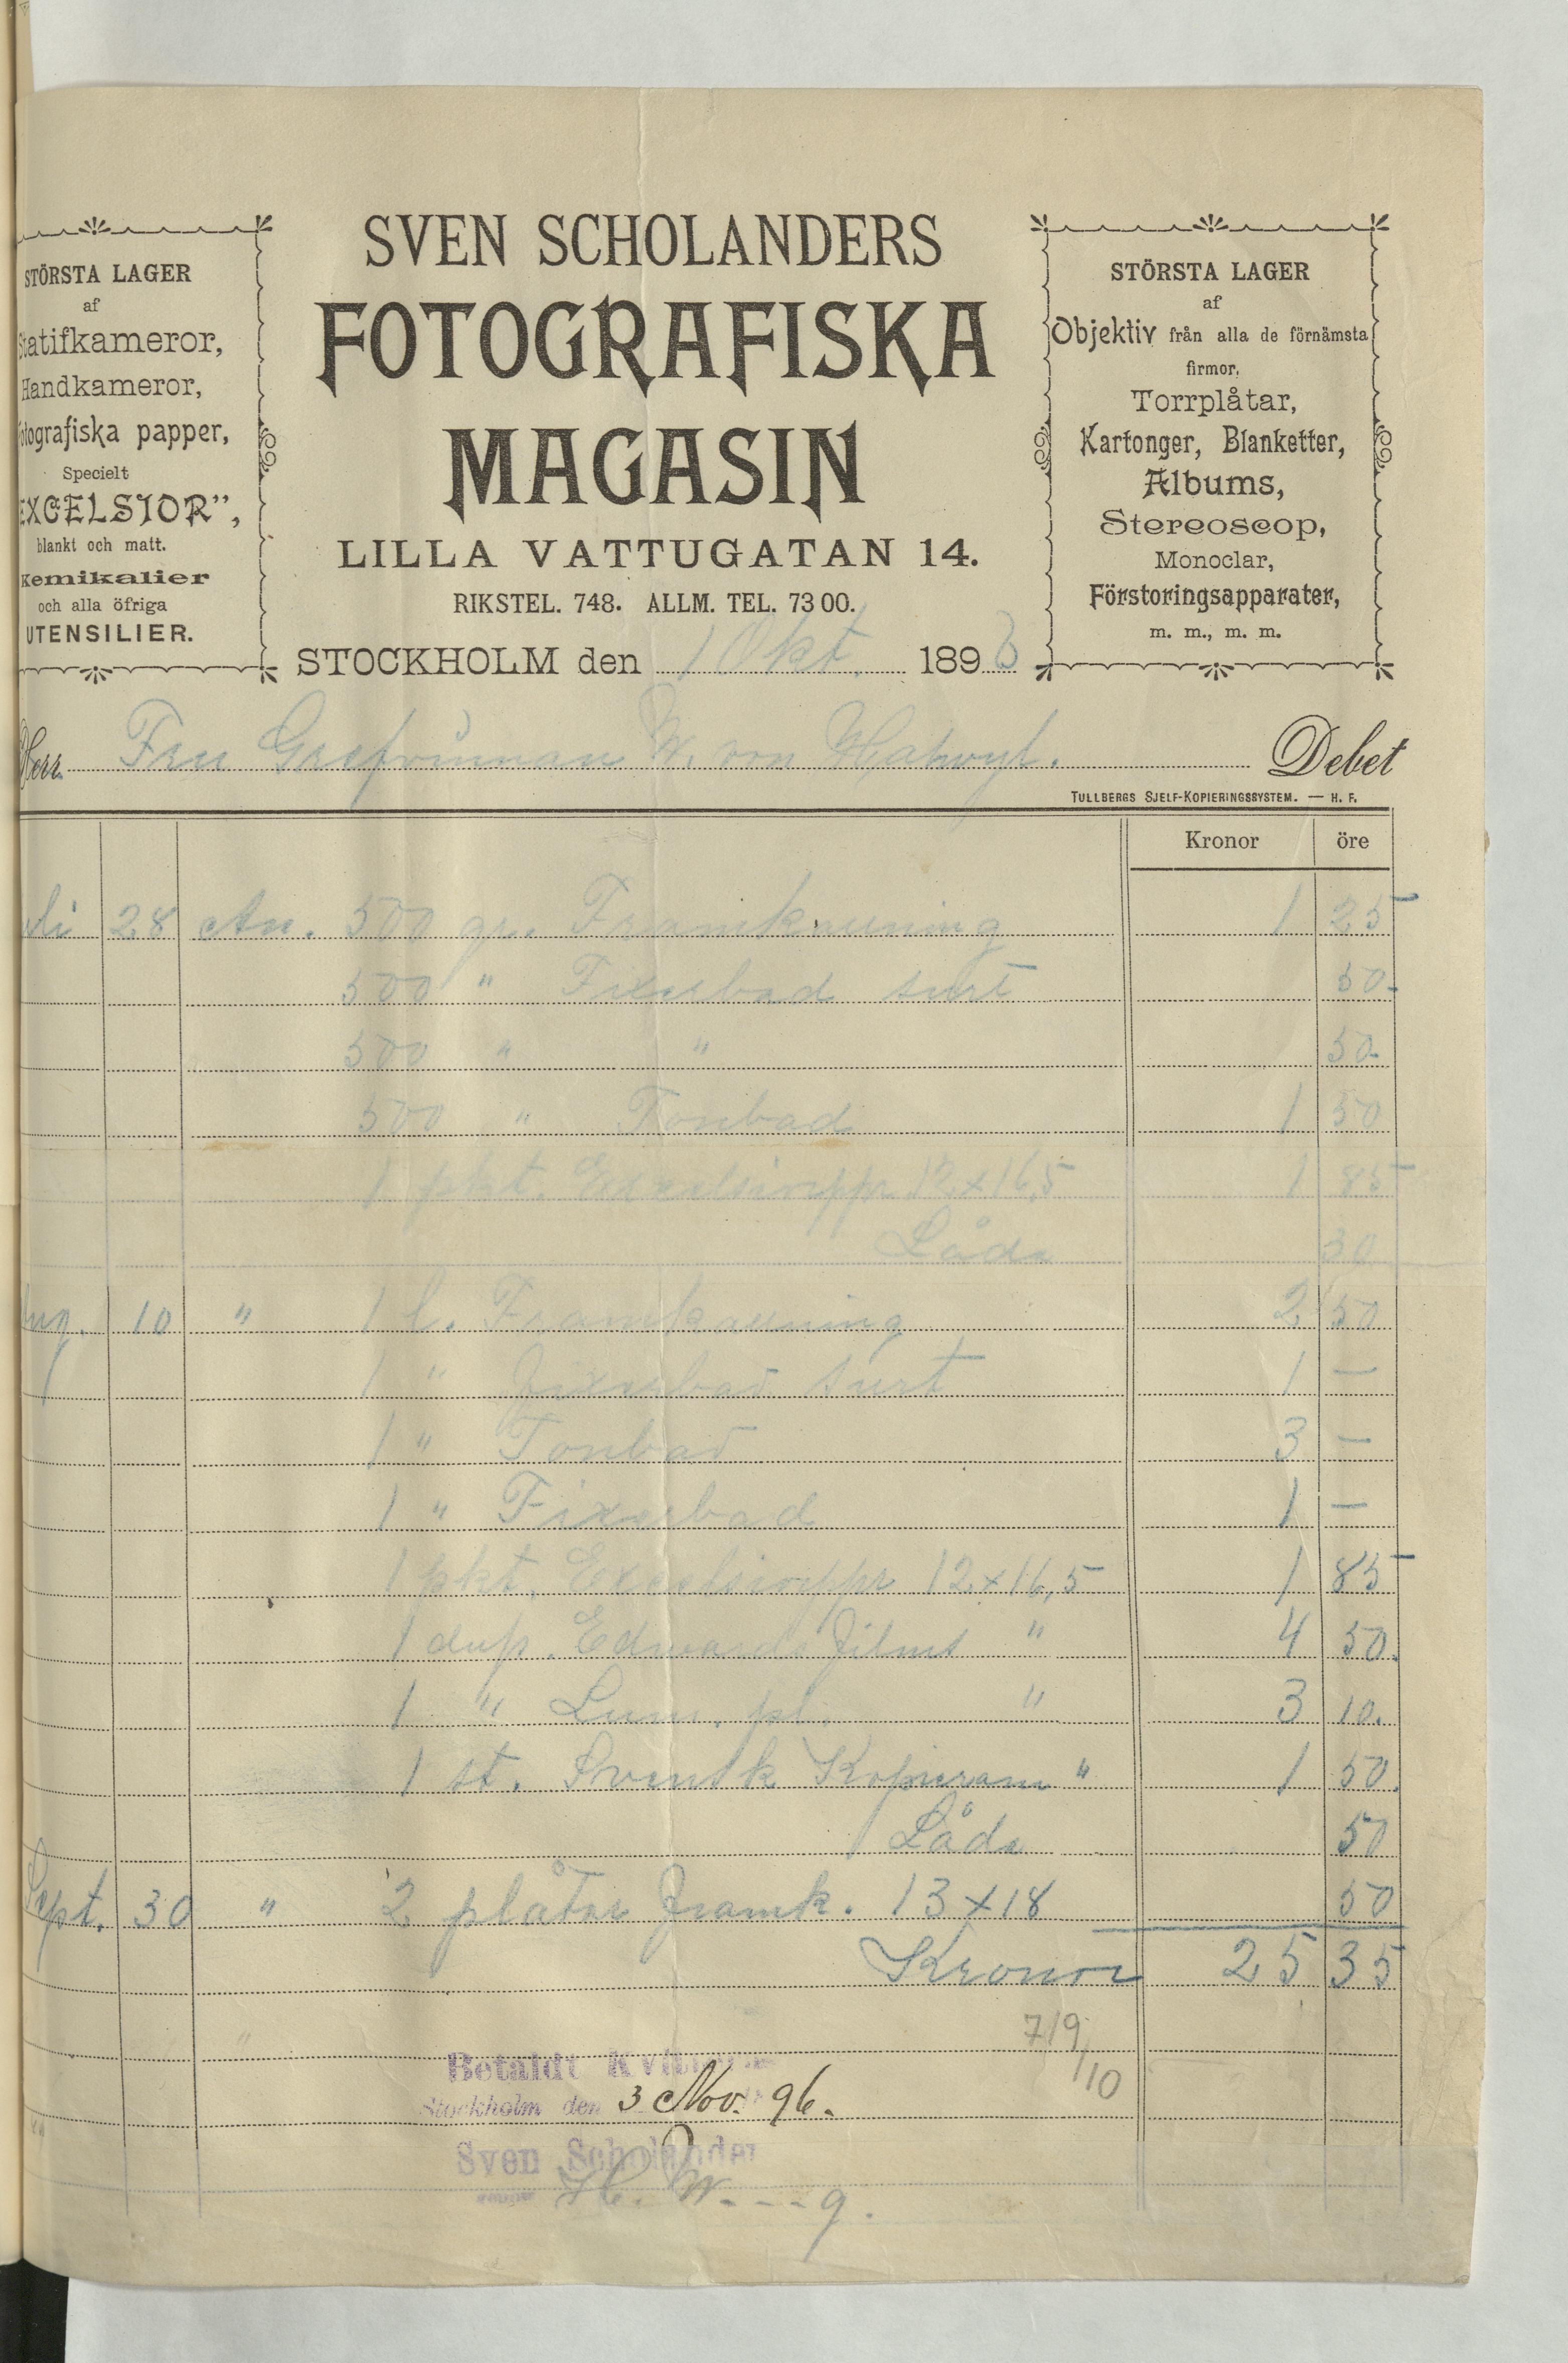 STÖRSTA LAGER
af
Statifkameror,
Handkameror,
fotografiska papper,
Specielt
EXCELSIOR”,
blankt och matt.
Kemikalier
och alla öfriga
UTENSILIER.
SVEN SCHOLANDERS
FOTOGRAFISKA
MAGASIN
LILLA VATTUGATAN 14.
RIKSTEL. 748. ALLM. TEL. 73 00.
STOCKHOLM den 1 Okt. 1896
STÖRSTA LAGER
af
Objektiv från alla de förnämsta
firmor,
Torrplåtar,
Kartonger, Blanketter,
Albums,
Stereoscop,
Monoclar,
Förstoringsapparater,
m. m., m. m.
Herr Fru Grefvinnan W. von Hallwyl. Debet
TULLBERGS SJELF-KOPIERINGSSYSTEM. — H. F.
Kronor öre
Juli 28 An. 500 gr. Framkallning 1 25
500 " Fixerbad surt 50
500 " " 50
500 " Tonbad 1 50
1 pkt. Excelsiorppr 12x16,5 1 85
Låda 30
Aug. 10 " 1 l. Framkallning 2 50
1 " Fixerbad surt 1 —
1 " Tonbad 3 —
1 " Fixerbad 1 —
1 pkt. Excelsiorppr 12x16,5 1 85
1 duss. Edwards films " 4 50
1 " Lum. pl. " 3 10
1 st. Svensk Kopieram " 1 50
Låda 50
Sept. 30 " 2 plåtar framk. 13x18 50
Kronor 25 35
719
/10
Betaldt Kvitteras
Stockholm den 3 Nov. 96.
Sven Scholander